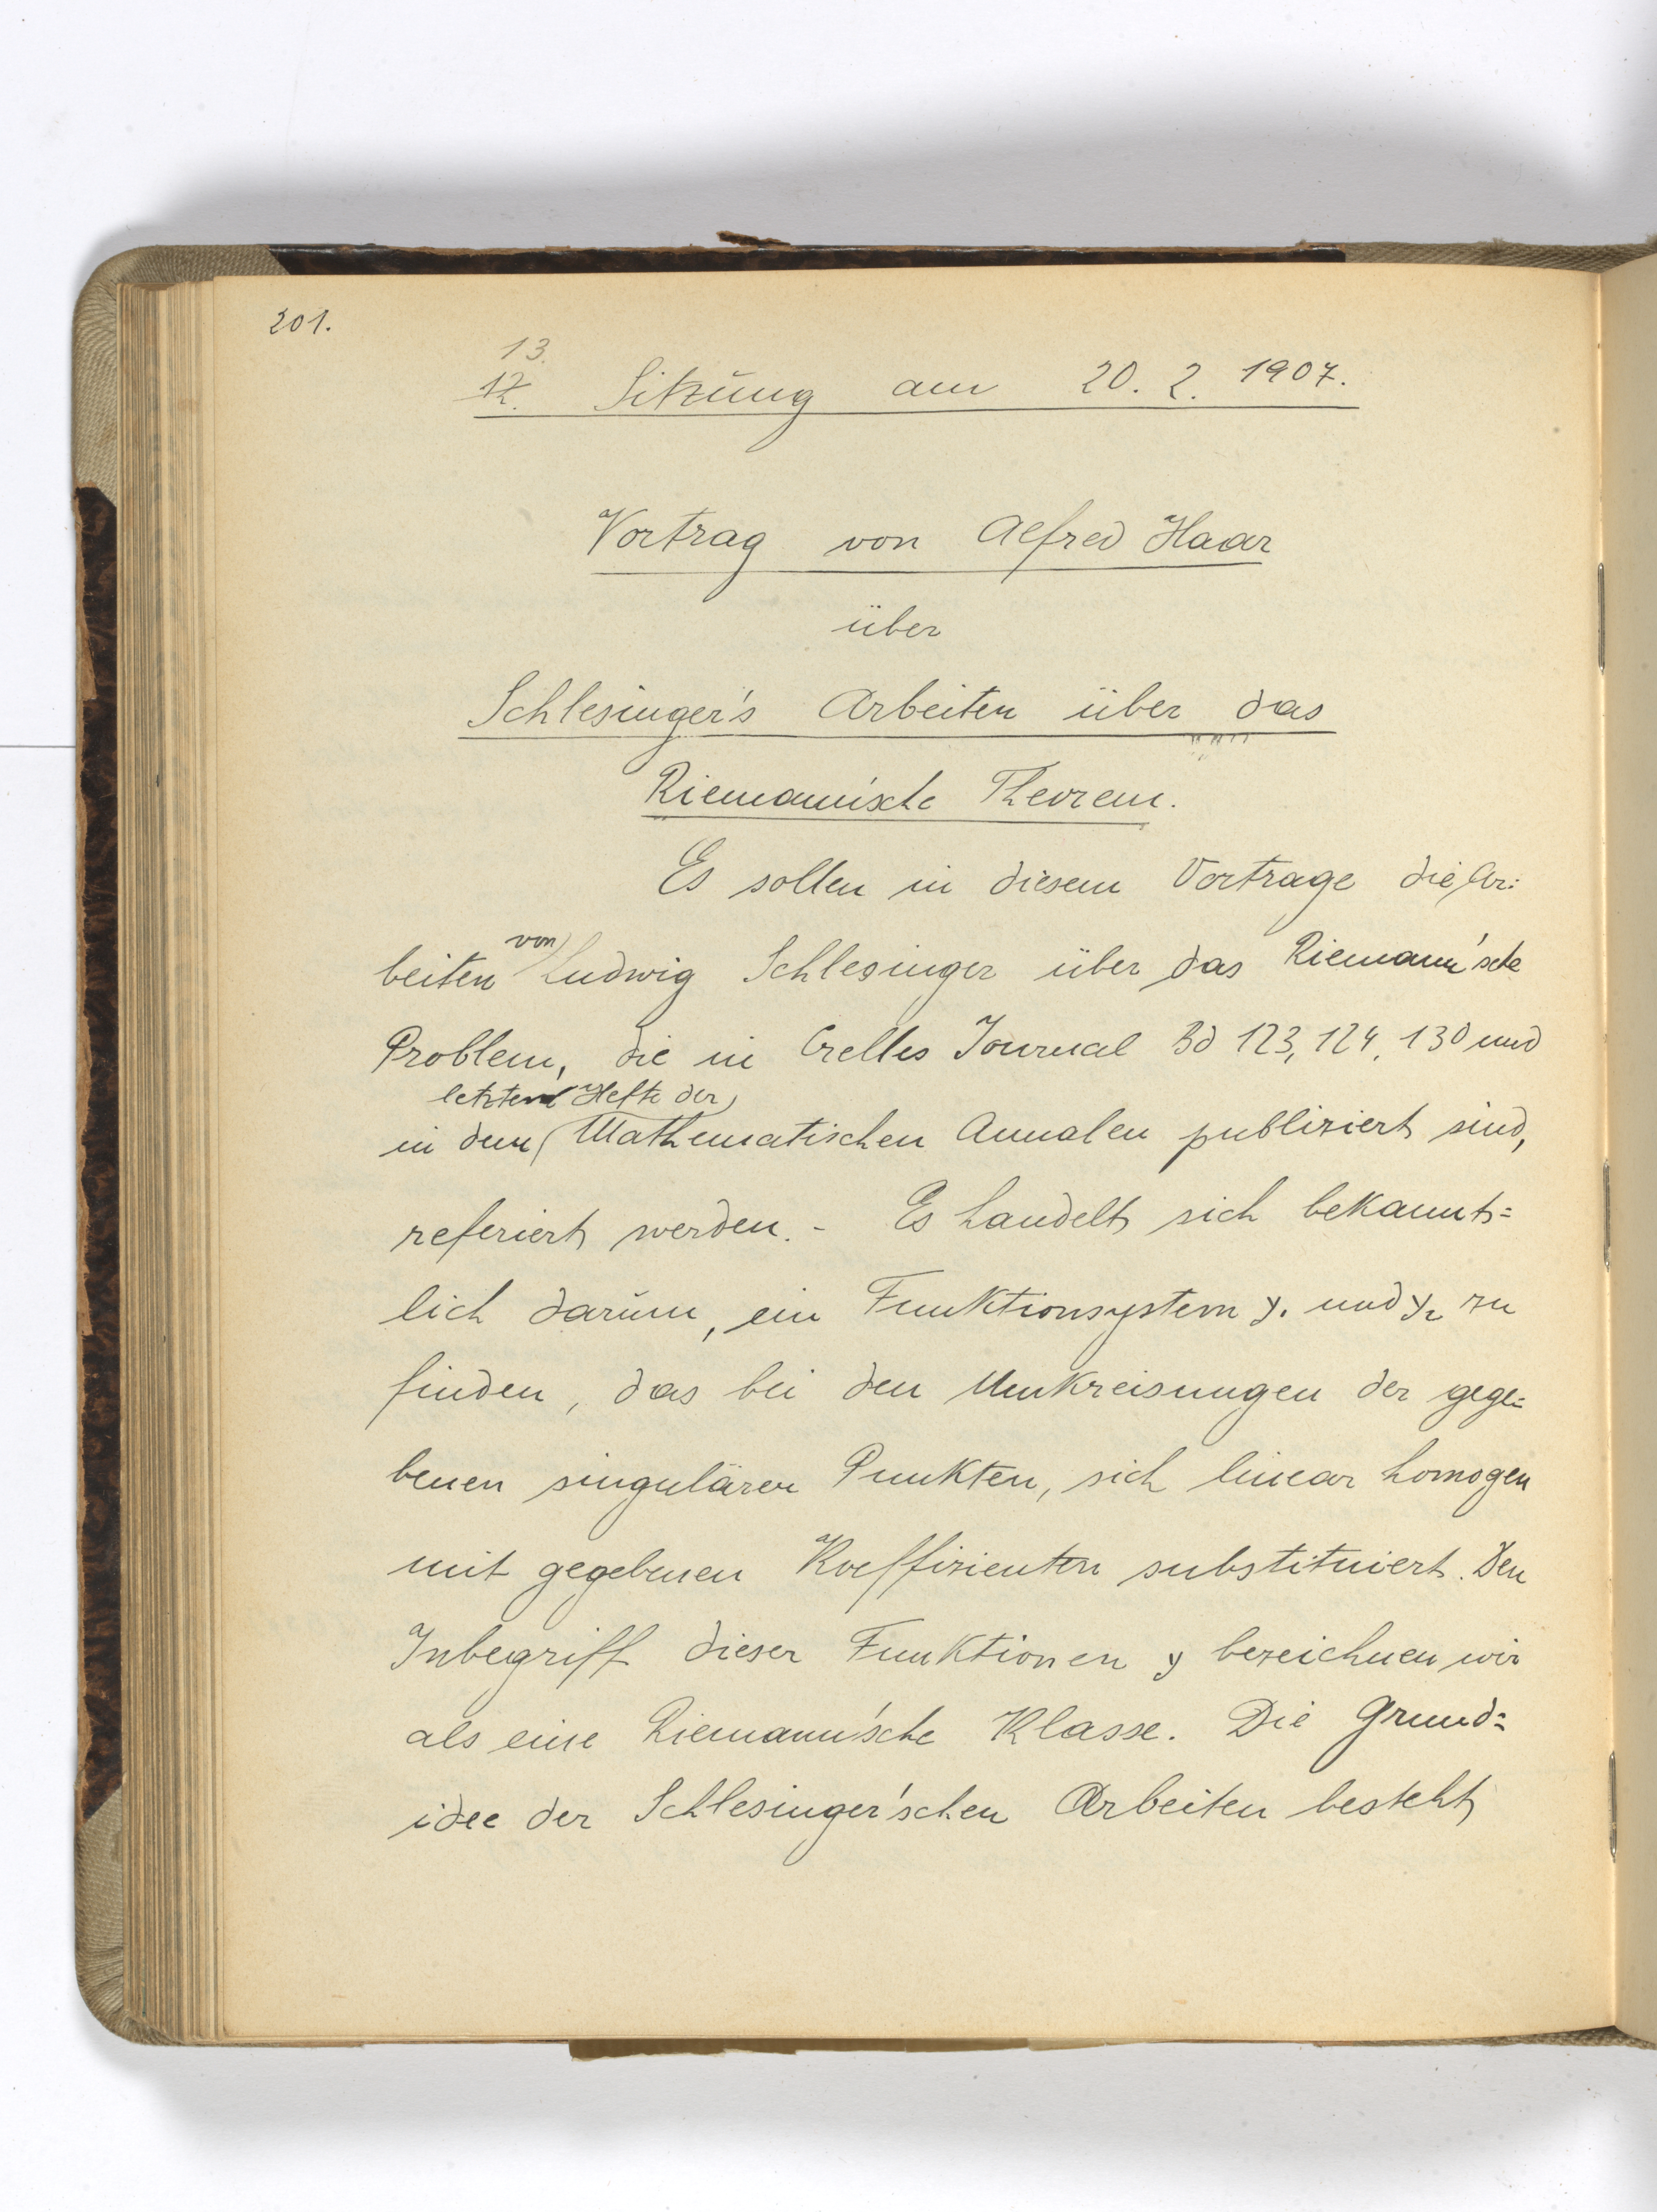 201.
13.
12. Sitzung am 20. 2. 1907.
Vortrag von Alfred Haar
über
Schlesinger's Arbeiten über das
Riemann'sche Theorem.
Es sollen in diesem Vortrage die Ar=
beiten von Ludwig Schlesinger über das Riemann'sche
Problem, die in Crelles Journal Bd 123, 124, 130 und
letzten Hefte der
in dem Mathematischen Annalen publiziert sind,
referiert werden. - Es handelt sich bekannt=
lich darum, ein Funktionsystem y₁ und y₂ zu
finden, das bei den Umkreisungen der gege=
benen singulären Punkten, sich linear homogen
mit gegebenen Koeffizienten substituiert. Den
Inbegriff dieser Funktionen y bezeichnen wir
als eine Riemann'sche Klasse. Die Grund=
idee der Schlesinger'schen Arbeiten besteht